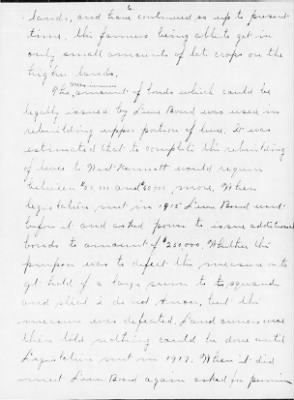 lands, and have continued so up to present
time, the farmers being able to get in
only small amounts of late crops on the
higher lands.
The maximum amount of bonds which could be
legally issued by Levee Board was used in
rebuilding upper portion of levee. It was
estimated that to complete the rebuilding
of levee to West Kennett would require
between and more. When
legislature met in 1915 Levee Board went
before it and asked power to issue additional
bonds to amount of $250000. Whether the
purpose was to defeat this measure or to
get hold of a large sum to squander
and steal I do not know, but the
measure was defeated. Land owners were
then told nothing could be done until
Legislature met in 1917. When it did
meet Levee Board again asked for permis